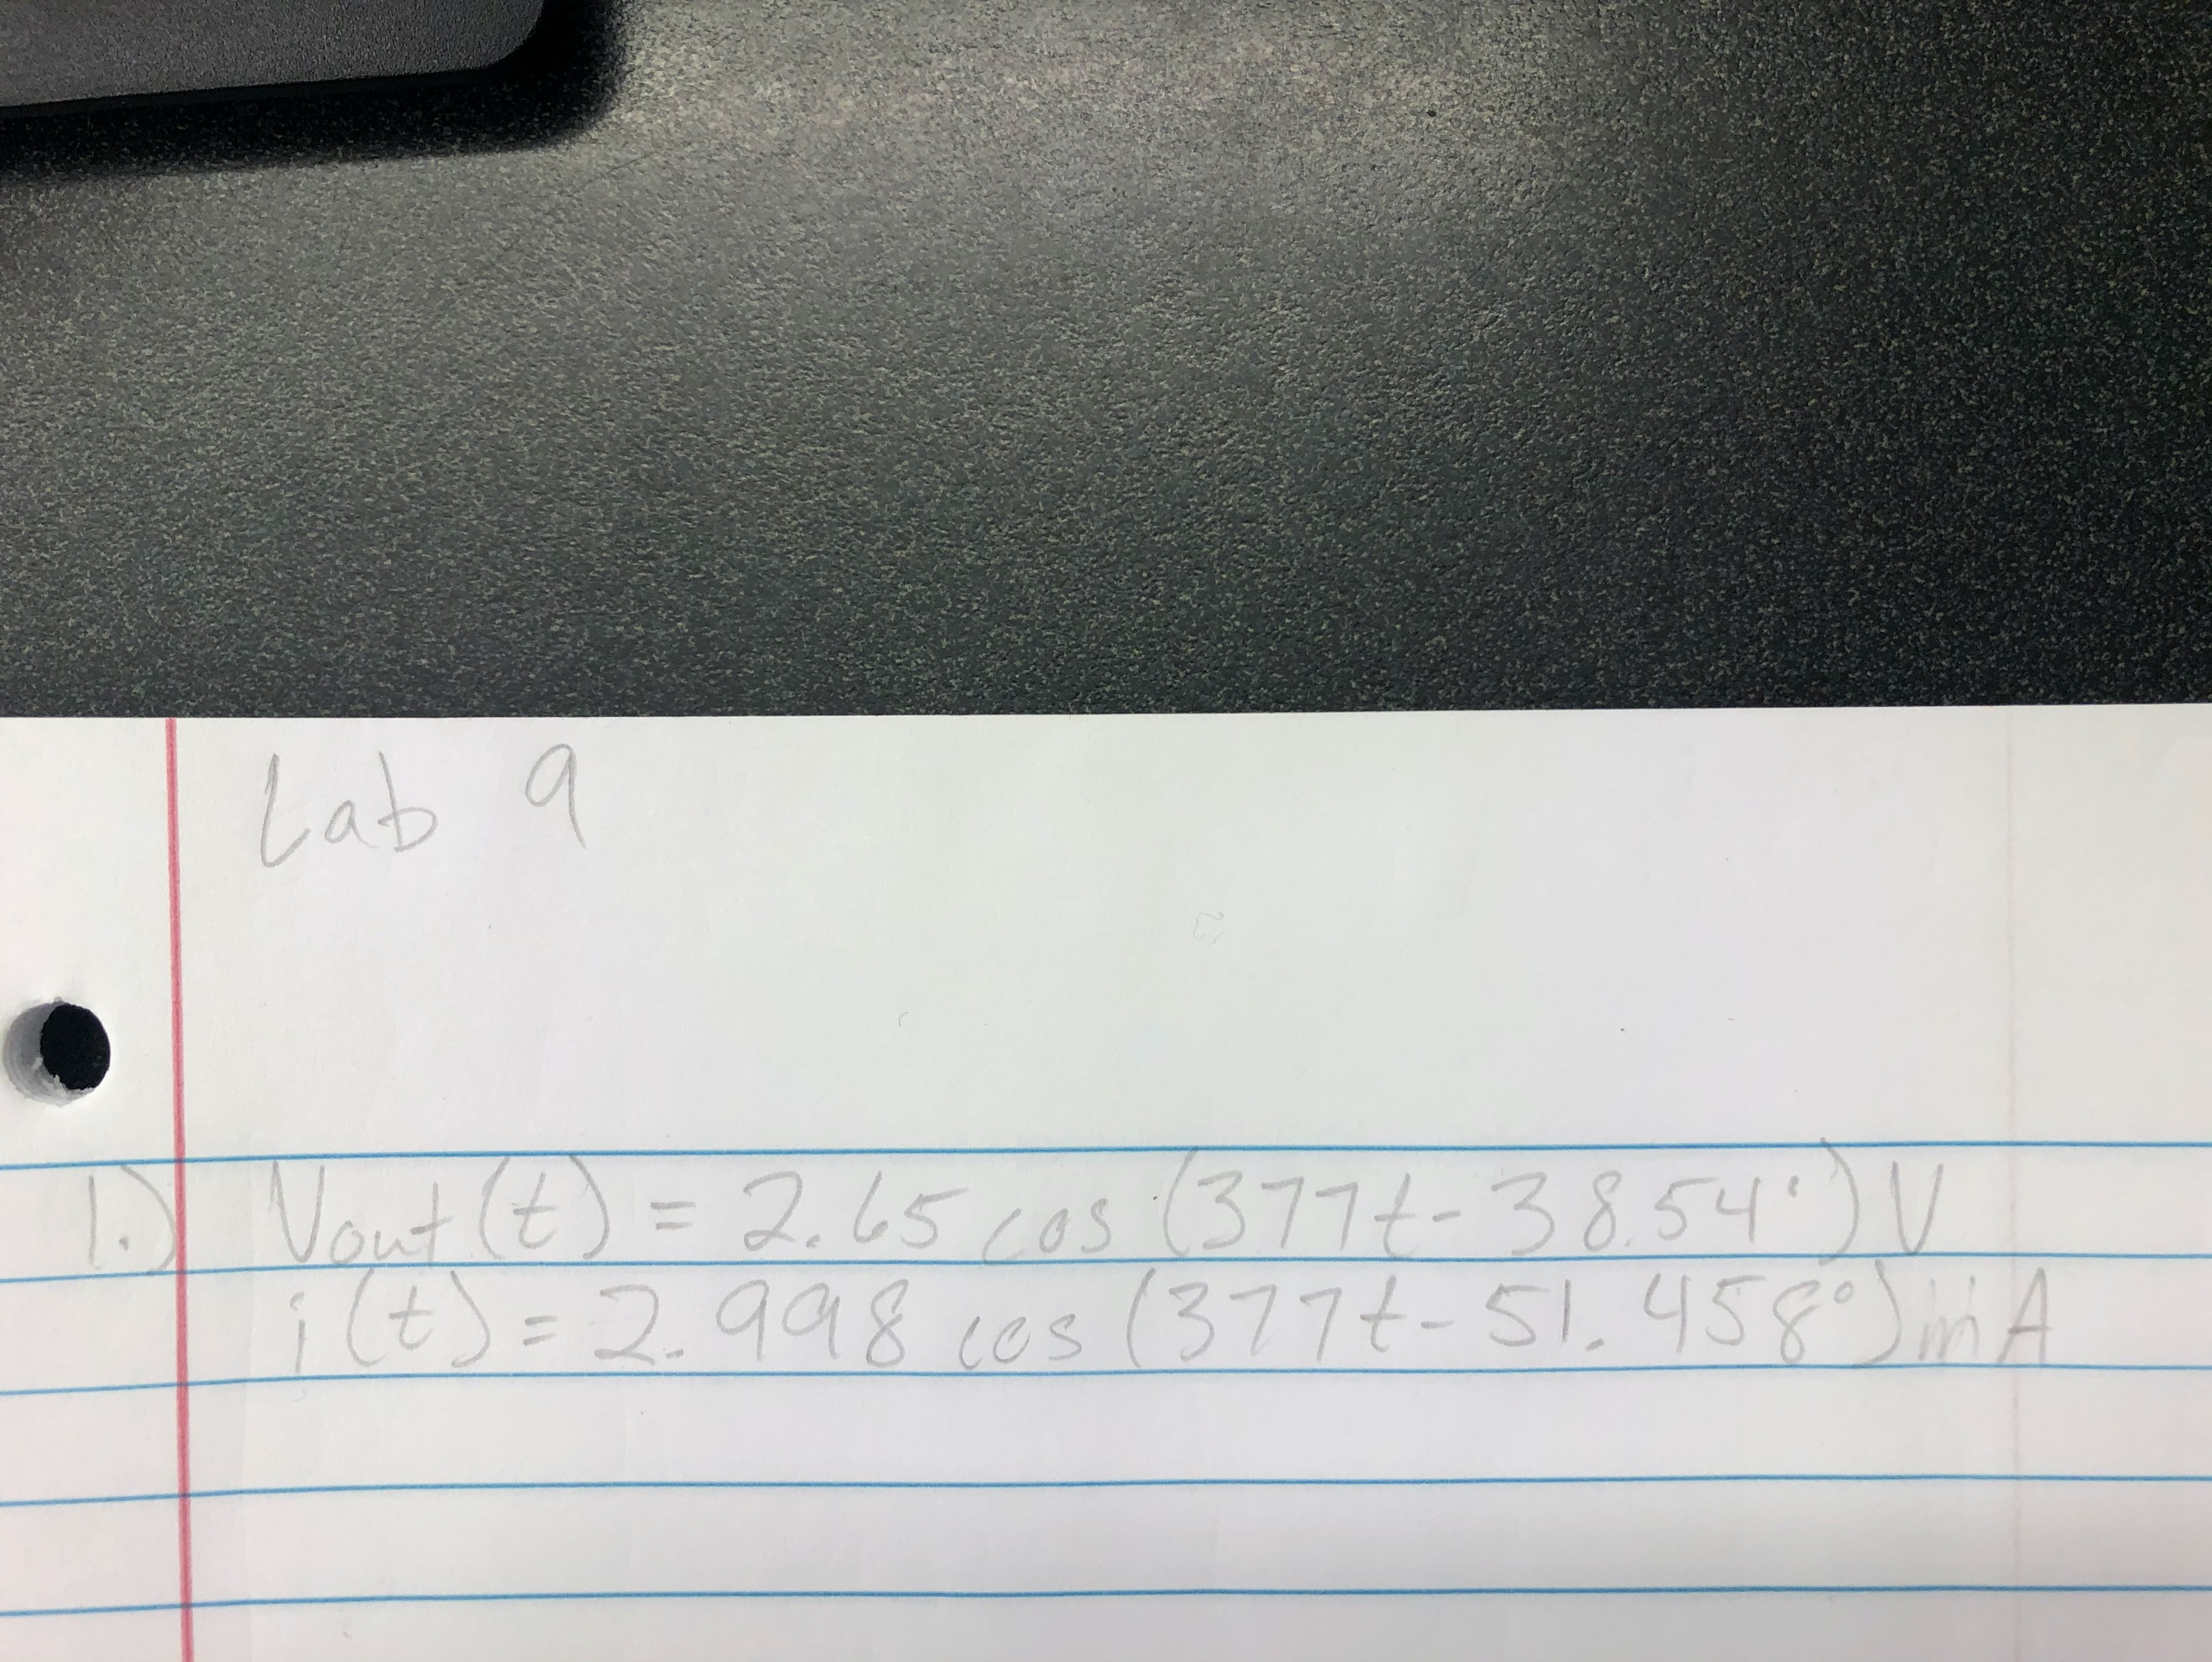 Lab 9
1.) Vout(t) = 2.65 cos (377t - 38.54°) V
i(t) = 2.998 cos (377t - 51.458°) mA